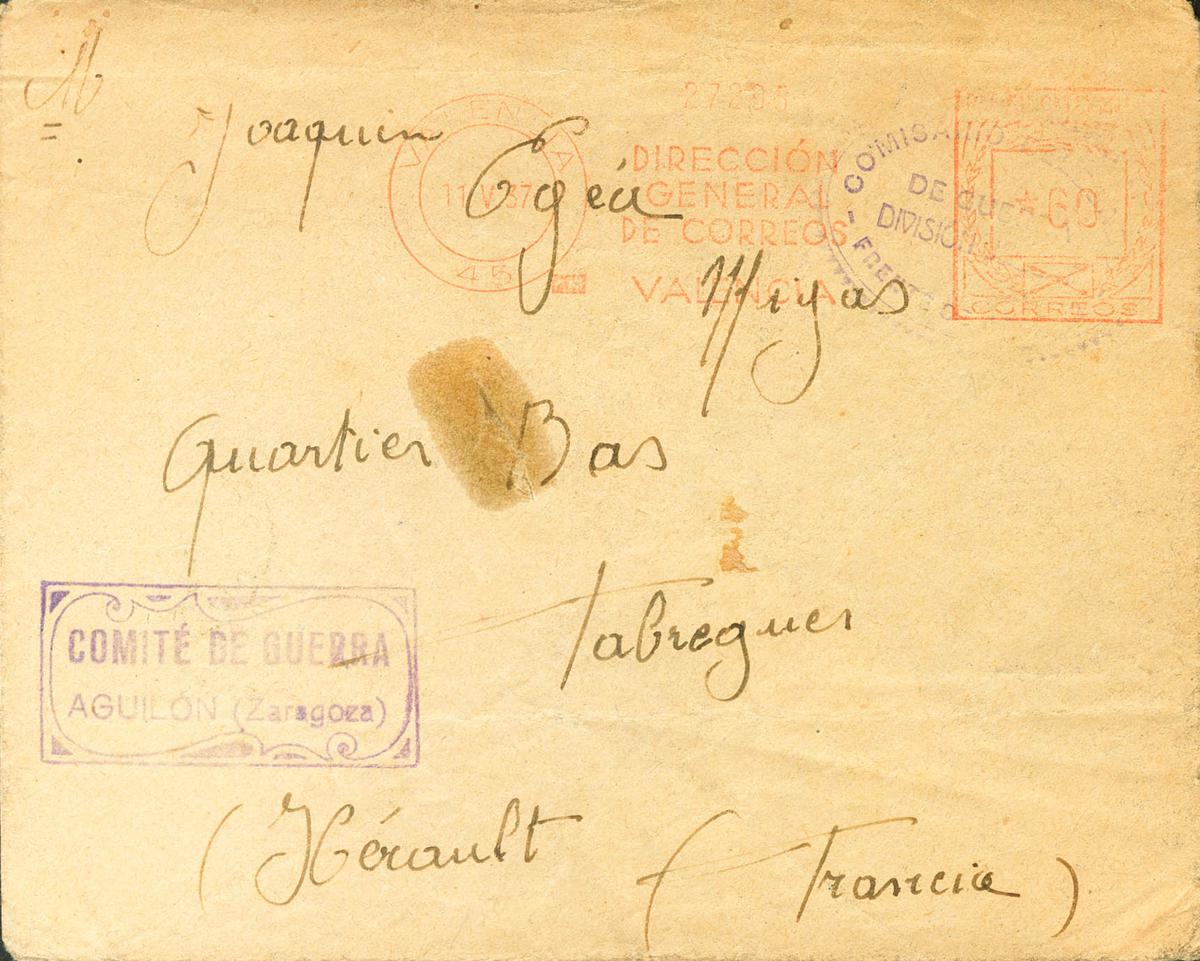 M
Joaquin
Egéa
Migas
Quartier Bas
Fabregues
(Hérault (Francia)
VALENCIA
11 V 37
45
27295
DIRECCIÓN
GENERAL
DE CORREOS
VALENCIA
COMISARIO
DE GUERRA
DIVISION
FRENTE
*60
CORREOS
COMITÉ DE GUERRA
AGUILÓN (Zaragoza)